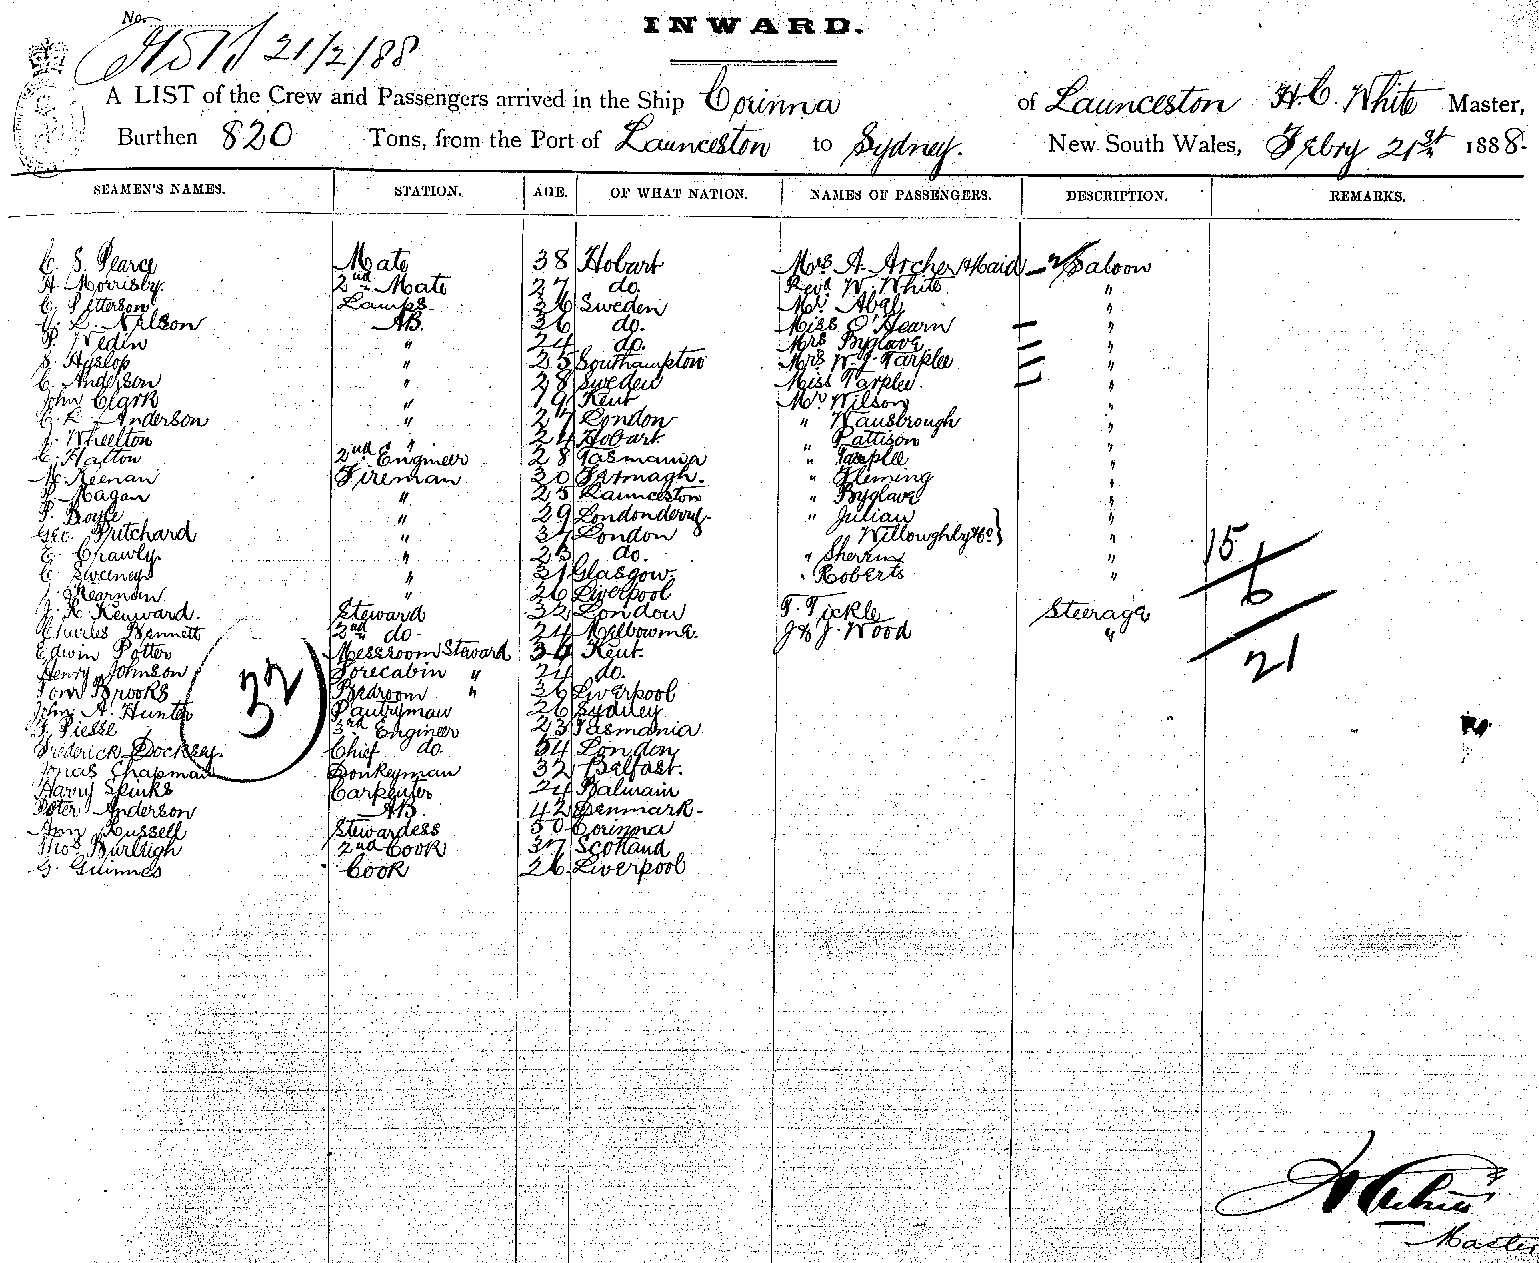 No.
21/2/88
INWARD.
A LIST of the Crew and Passengers arrived in the Ship Corinna of Launceston H. C. White Master,
Burthen 820 Tons, from the Port of Launceston to Sydney. New South Wales, Febry 21st 1888.
SEAMEN'S NAMES. STATION. AGE. OF WHAT NATION. NAMES OF PASSENGERS. DESCRIPTION. REMARKS.
C. S. Pearce Mate 38 Hobart Mrs A. Archer & Maid 2/ Saloon
A. Morrisby. 2nd Mate 27 do. Revd W. White "
C. Petterson Lamps 36 Sweden Mr. Abel "
L. Nelson AB. 36 do. Miss O'Hearn "
P. Wedin " 24 do. Mrs Byglave "
S. Hyslop " 25 Southampton Mrs W. J. Tarplee "
C. Anderson " 28 Sweden Miss Tarplee. "
John Clark " 19 Kent Mr. Wilson "
C. R. Anderson " 27 London " Wansbrough "
J. Wheelton " 24 Hobart " Pattison "
C. Halton 2nd Engineer 28 Tasmania " Tarplee "
M. Keenan Fireman 30 Farmagh. " Fleming "
P. Magan " 25 Launceston " Byglave "
P. Boyle " 29 Londonderry. " Julian "
Geo. Pritchard " 37 London Willoughby & Co } "
E. Crawly. " 23 do. " Sherrin " 15
C. Sweeney " 31 Glasgow. " Roberts " 6
J. Kearnan " 26 Liverpool
J. R. Kenward. Steward 32 London T. Tickle Steerage
Charles Bennett 2nd do. 24 Melbourne. J & J. Wood " 21
Edwin Potter Messroom Steward 36 Kent.
Henry Johnson Forecabin " 24 do.
32
Tom Brooks Bedroom " 36 Liverpool
John A. Hunter Pantryman 26 Sydney
F. Piesse 3rd Engineer 23 Tasmania
Frederick Docksey. Chief do 54 London
Jonas Chapman Donkeyman 32 Belfast.
Harry Spinks Carpenter 24 Balmain
Peter Anderson AB. 42 Denmark
Ann Russell Stewardess 50 Corinna
Thos Burleigh 2nd Cook 37 Scotland
G. Guinnes Cook 26 Liverpool
Master